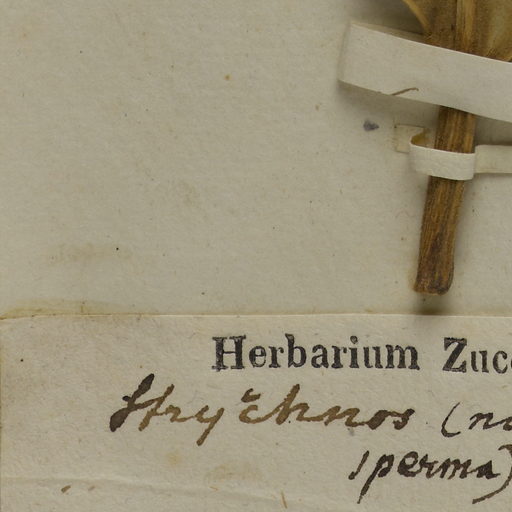 Herbarium Zucc
Strychnos (no
sperma)